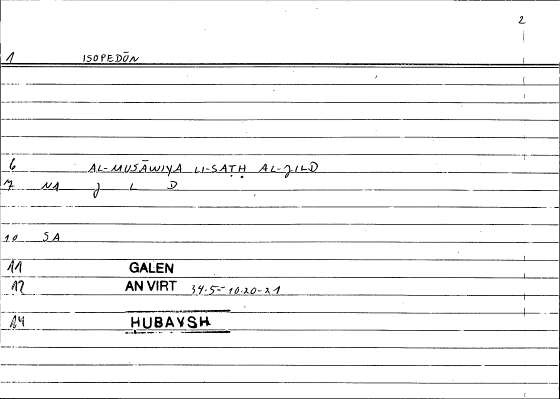 2
1 ISOPEDŌN
6 AL-MUSĀWIYA LI-SAṬḤ AL-JILD
7 NA J L D
10 SA
11 GALEN
12 AN VIRT 34.5-10.20-21
14 HUBAYSH